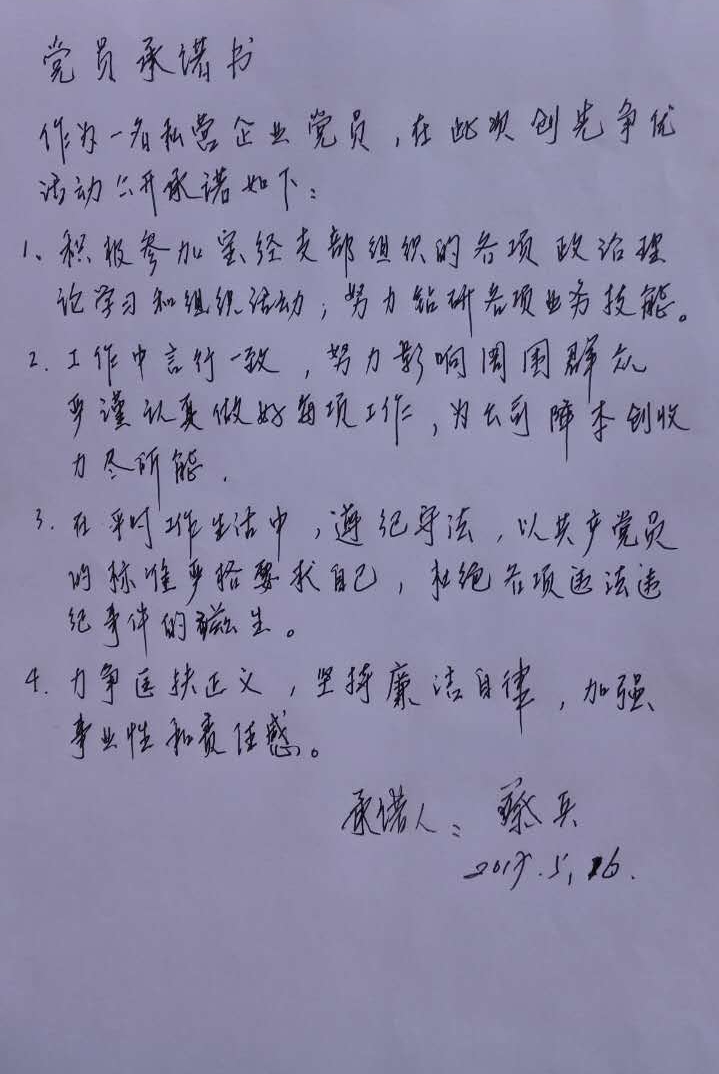 党员承诺书
作为一名私营企业党员,在此次创先争优
活动公开承诺如下:
1、积极参加宝经支部组织的各项政治理
论学习和组织活动;努力钻研各项业务技能。
2. 工作中言行一致,努力影响周围群众
严谨认真做好每项工作,为公司降本创收
力尽所能.
3. 在平时工作生活中,遵纪守法,以共产党员
的标准严格要求自己,杜绝各项违法违
纪事件的滋生。
4. 力争匡扶正义,坚持廉洁自律,加强
事业性和责任感。
承诺人:蔡兵
5,26.